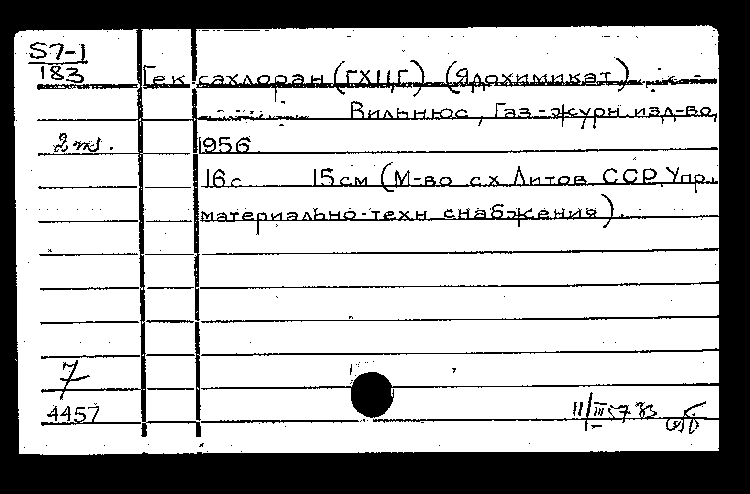 57-1
183
Гексахлоран (ГХЦГ) (Ядохимикат)
Вильнюс, Газ-журн изд-во,
2 т. 1956
16 с 15 см (М-во с.х Литов ССР, Упр.
материально-техн снабжения).
7
4457